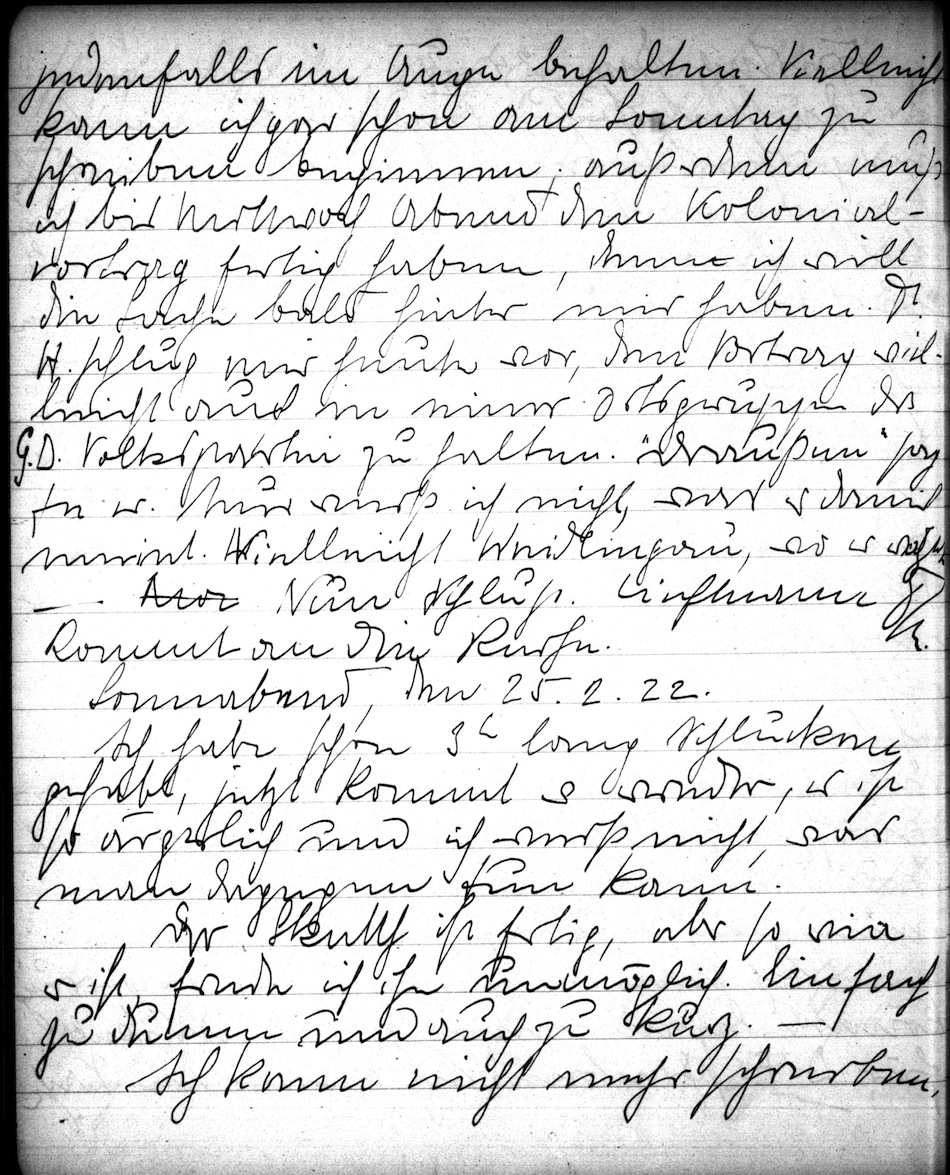 jedenfalls im Auge behalten. Vielleicht
kann ich gar schon am Sonntag zu
schreiben beginnen, außerdem muß
ich bis Mittwoch Abend den Kolonial-
vortrag fertig haben, denn ich will
die Sache bald hinter mir haben. Dr.
H. schlug mir heute vor, den Vortrag viel-
leicht auch in einer Ortsgruppe der
G.D. Volkspartei zu halten. "draußen" sag
te er. Nur weiß ich nicht, was er damit
meint. Vielleicht Weidlingau, wo er
—. Nun Schluß. Liechtenstein
kommt an die Reihe.
Sonnabend, den 25.2.22.
Ich habe schon 3h lang Schlucken
gehabt, jetzt kommt es wieder, es ist
so ärgerlich und ich weiß nicht, was
man dagegen tun kann.
Der ist fertig, aber so wie
er ist, finde ich ihn unmöglich. Einfach
zu dumm und auch zu kurz. —
Ich kann nicht mehr schreiben,